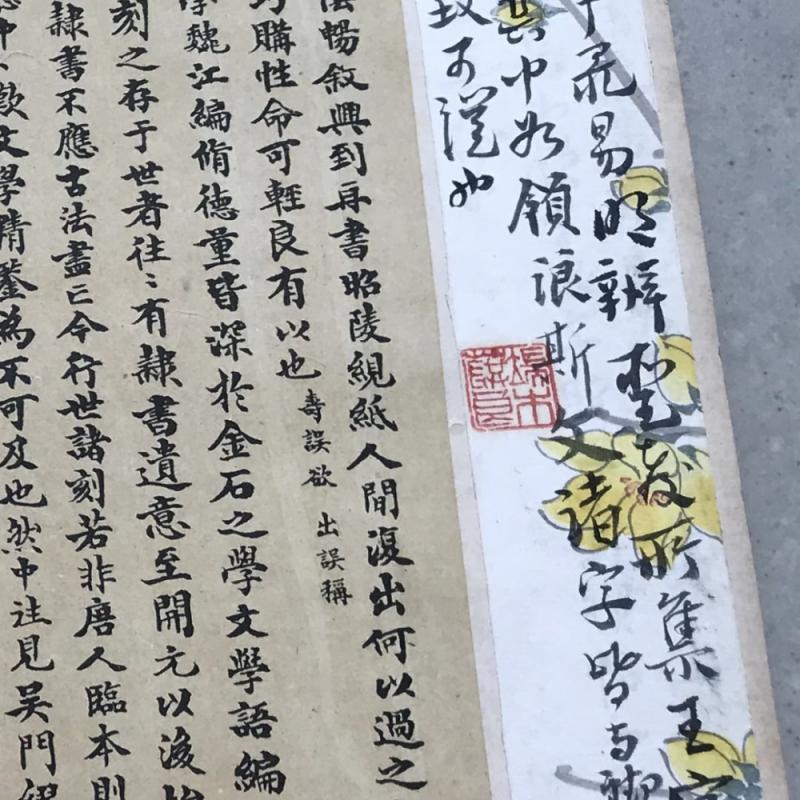 飛易明辨聖教所集王字
其中如領浪斯文諸字皆与
致可
端木蕻良
暢敘興到再書昭陵絸紙人間復出何以過之
購性命可輕良有以也 壽誤欲 出誤稱
魏江編脩德量皆深於金石之學文學語編
刻之存于世者往〻有隸書遺意至開元以後
隸書不應古法盡亡今行世諸刻若非唐人臨本則
文學精鑒為不可及也然中注見吳門